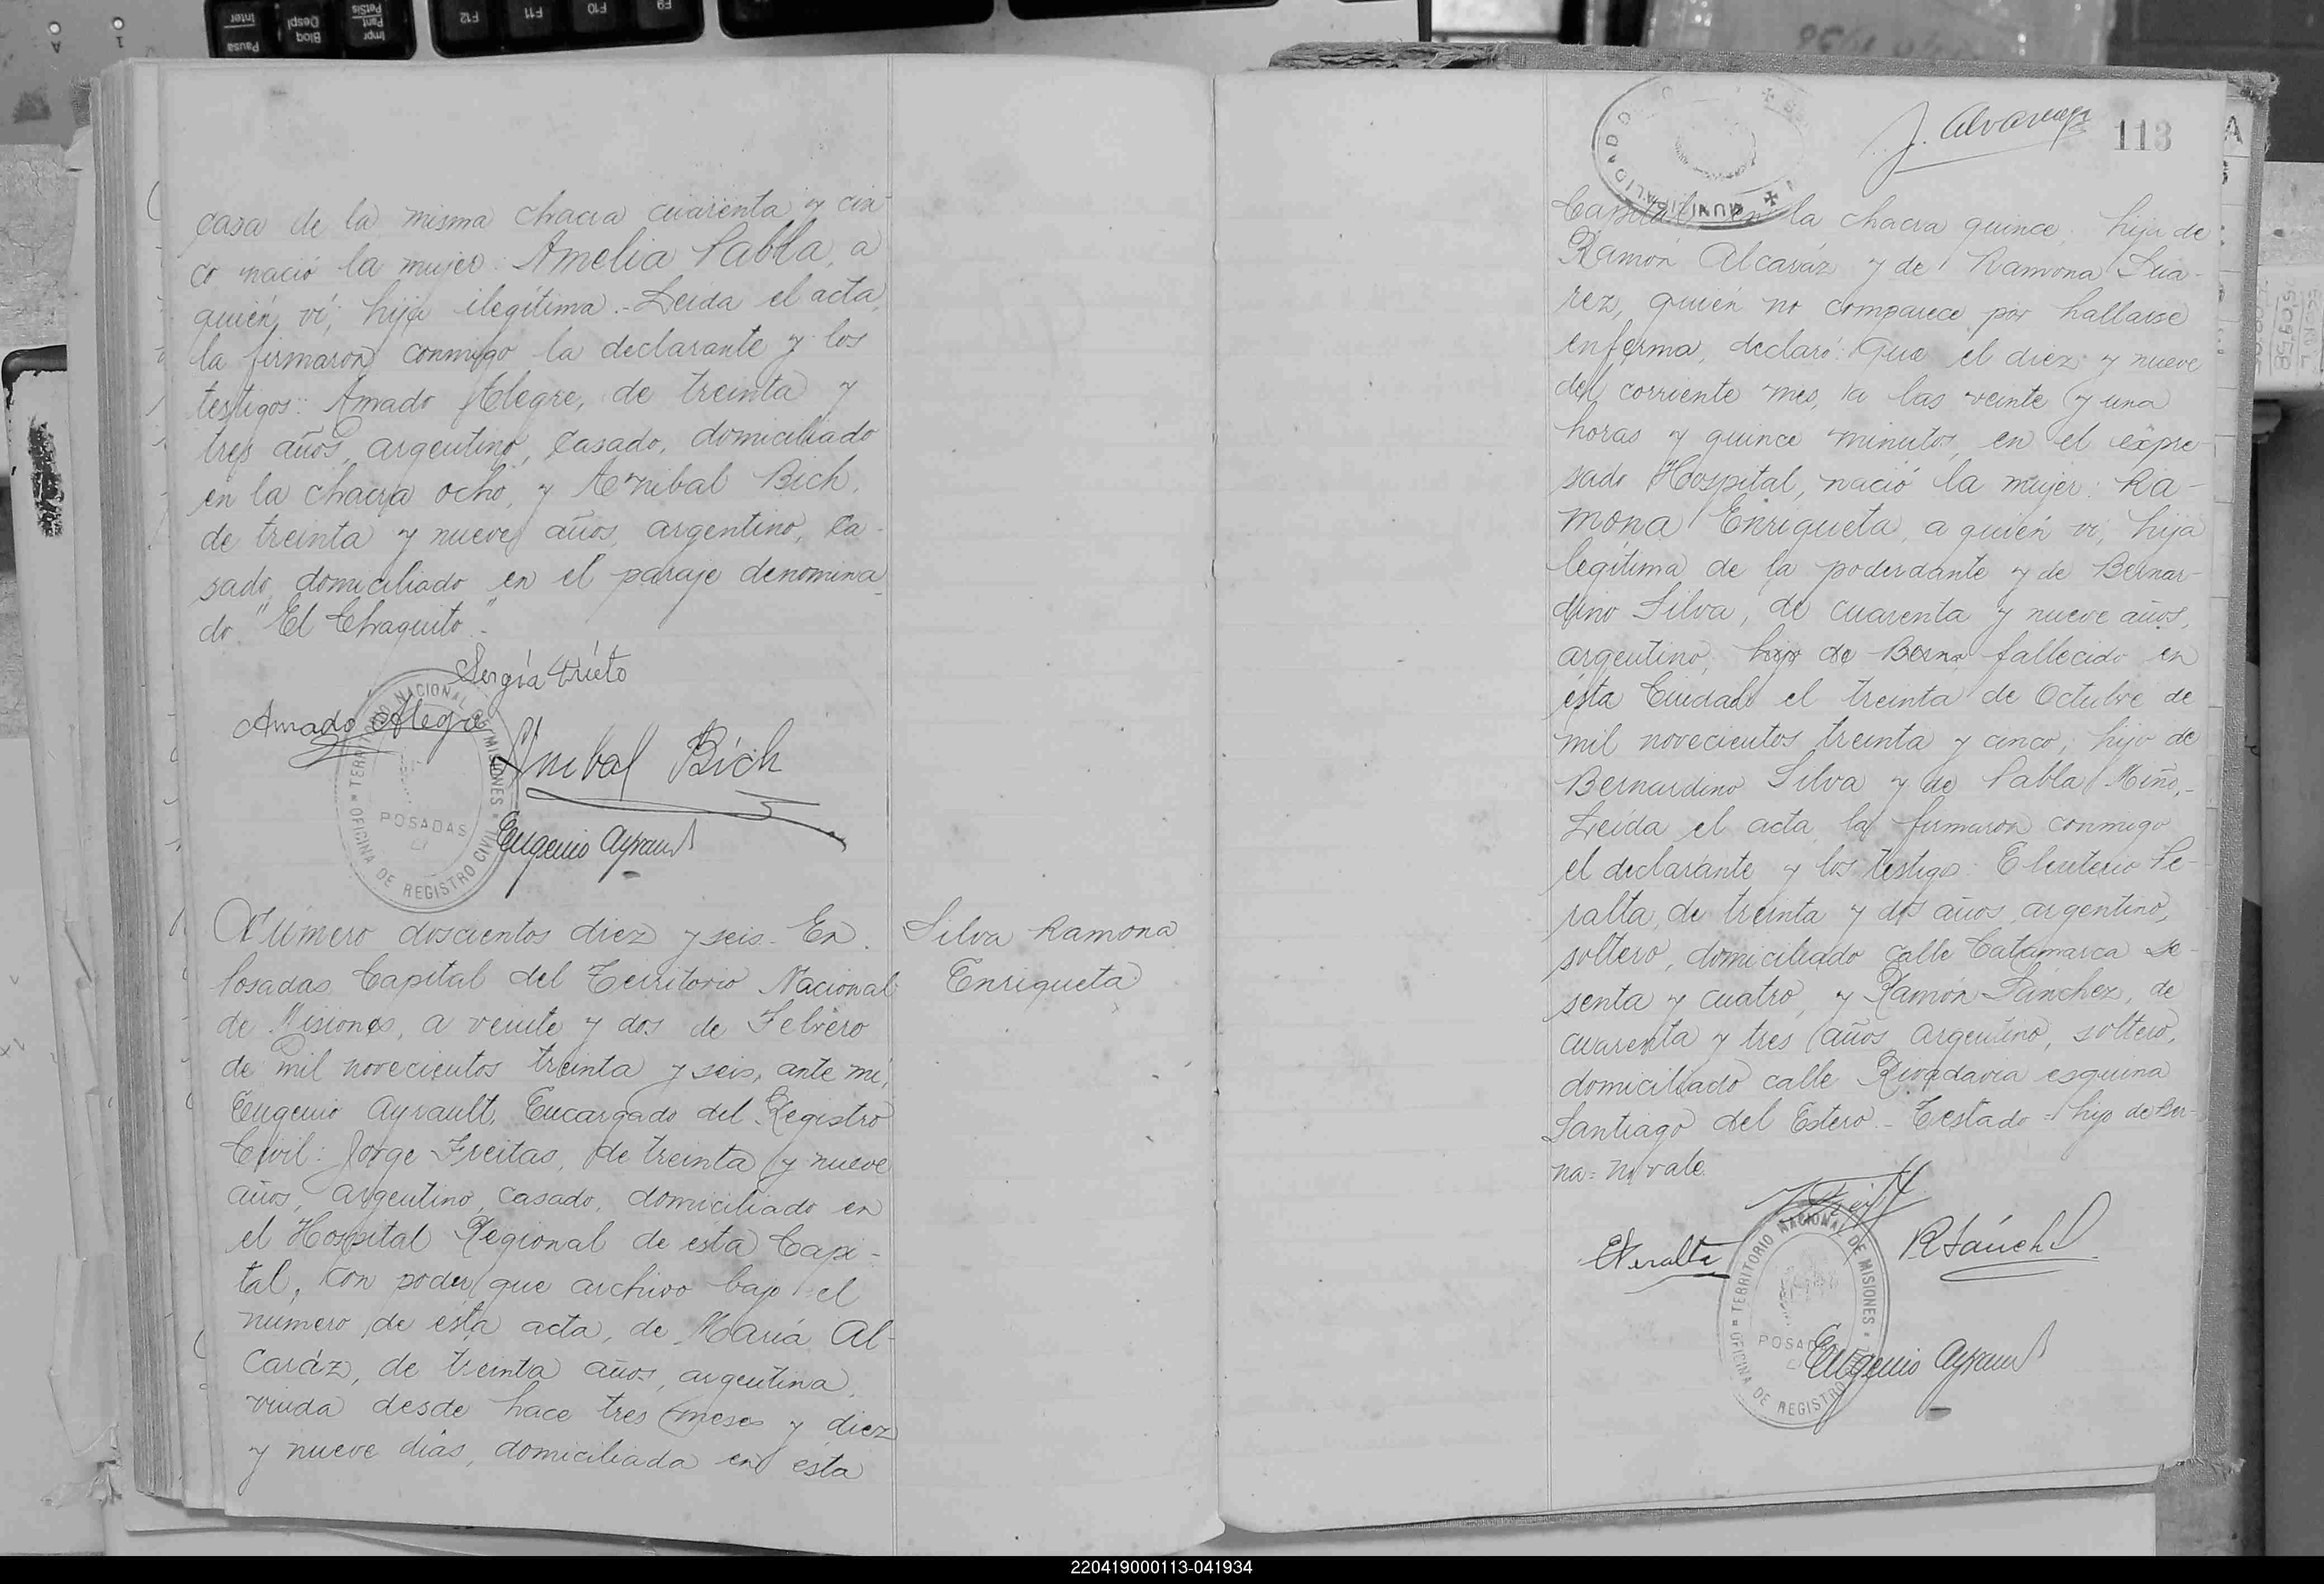 casa de la misma chacra cuarenta y cin-
co nació la mujer: Amelia Pabla, a
quién ví; hija ilegítima.- Leida el acta,
la firmaron conmigo la declarante y los
testigos: Amado Alegre, de treinta y
tres años, argentino, casado, domiciliado
en la chacra ocho, y Anibal Bich,
de treinta y nueve años, argentino, ca-
sado, domiciliado en el paraje denomina-
do "El Chaquito".-
Sergia
Amado Alegre
Anibal Bich
TERRITORIO NACIONAL DE MISIONES
POSADAS
OFICINA DE REGISTRO CIVIL
Eugenio Ayrault
Número doscientos diez y seis. En
Posadas Capital del Territorio Nacional
de Misiones, a veinte y dos de Febrero
de mil novecientos treinta y seis, ante mí,
Eugenio Ayrault, Encargado del Registro
Civil: Jorge Freitas, de treinta y nueve
años, argentino, casado, domiciliado en
el Hospital Regional de esta Capi-
tal, con poder que archivo bajo el
numero de ésta acta, de María Al-
caráz, de treinta años, argentina,
viuda desde hace tres meses y diez
y nueve días, domiciliada en ésta
Silva Ramona
Enriqueta
MUNICIPALIDAD
J. Alvarenga
113
Capital en la chacra quince, hija de
Ramón Alcaráz y de Ramona Sua-
rez, quién no comparece por hallarse
enferma, declaró: Que el diez y nueve
del corriente mes, a las veinte y una
horas y quince minutos, en el expre-
sado Hospital, nació la mujer: Ra-
mona Enriqueta, a quién ví, hija
legítima de la poderdante y de Bernar-
dino Silva, de cuarenta y nueve años,
argentino, hijo de Berna fallecido en
ésta Ciudad el treinta de Octubre de
mil novecientos treinta y cinco; hijo de
Bernardino Silva y de Pabla Miño.-
Leída el acta la firmaron conmigo
el declarante y los testigos: Eleuterio Pe-
ralta, de treinta y dos años, argentino,
soltero, domiciliado calle Catamarca se-
senta y cuatro, y Ramón Sánchez, de
cuarenta y tres años, argentino, soltero,
domiciliado calle Rivadavia esquina
Santiago del Estero.- Testado = hijo de Ber-
na = no vale.
EPeralta
RSánchez
TERRITORIO NACIONAL DE MISIONES
POSADAS
OFICINA DE REGISTRO
Eugenio Ayrault
220419000113-041934